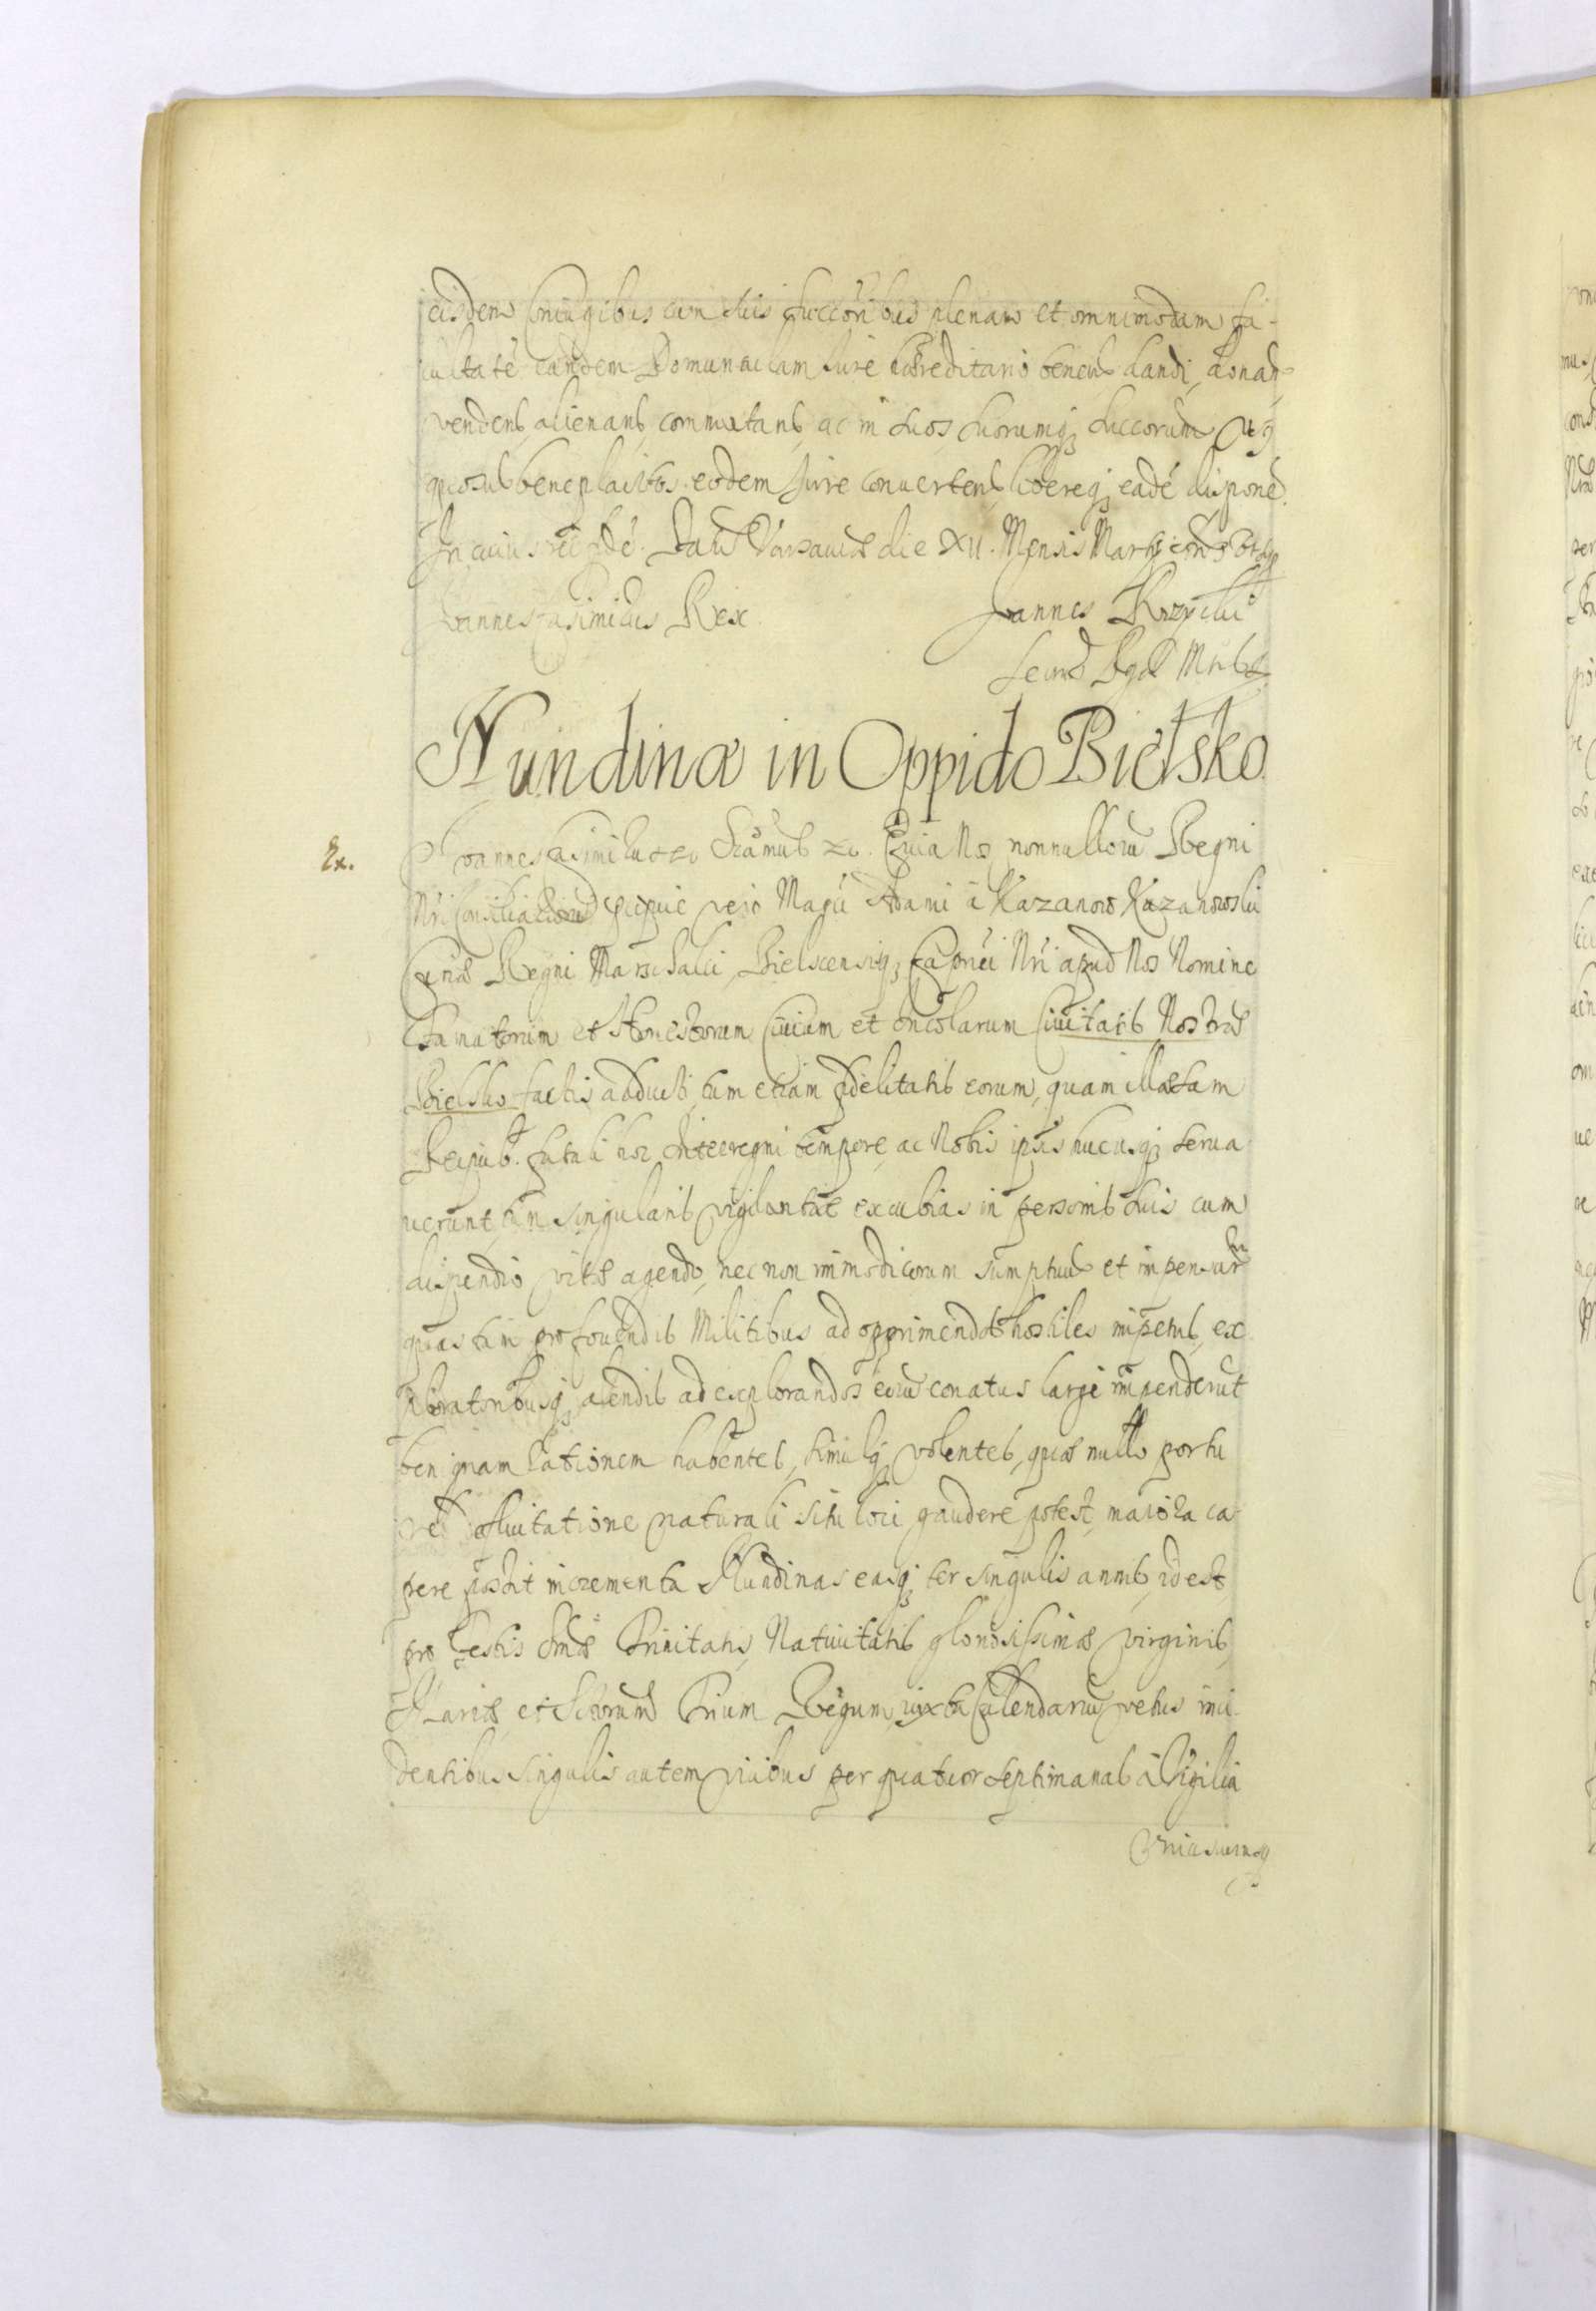 eisdem Coniugibus cum suis succōribus plenam et omnimodam fa-
cultatē eandem Domunculam Iure haereditario tenend dandi, donan-
vendend, alienand, commutand, ac in suos suorumq succorum
beneplacitos eodem Iure convertend, libereq eadē disponed.
In cuius rei fidē. Datū Varsauiae die XII. Mensis Martij
Joannes Casimirus Rex.
Joannes Krzycki
Secund Regae Mtis
Nundinae in Oppido Bielsko
Ex.
Joannes Casimirus &c. Significamus &c. Quia Nos nonnulloru Regni
Nri Consiliarioru precipue vero Magci Adami à Kazanow Kazanowski
Curiae Regni Marschalci, Bielscensisq Capnei Nri apud Nos Nomine
Famatorum et Honestorum Ciuium et Incolarum Ciuitatis Nostrae
Bielsko factis adducti, tum etiam fidelitatis eorum, quam illaesam
Reipub. fatali hoc Interregni tempore, ac Nobis ipsis hucusq serua
uerunt, tum singularis vigilantiae excubias in personis suis cum
dispendio vitae agendo, nec non immodicorum sumptuu et impensaru
quas tum pro fouendis Militibus ad opprimendos hostiles impetus, ex
ploratoribusq alendis ad explorandos eoru conatus large impenderut
benignam rationem habentes, simulq volentes, quae nullo portu
situ loci gaudere potest, maiora ca
pere possit incrementa Nundinas easq ter singulis annis, id est,
pro Festis Smae Trinitatis, Natiuitatis gloriosissimae virginis
Mariae et Sctorum Trium Regum, iuxta Calendariu vetus inci
dentibus singulis autem vicibus per quatuor septimanas à Vigilia